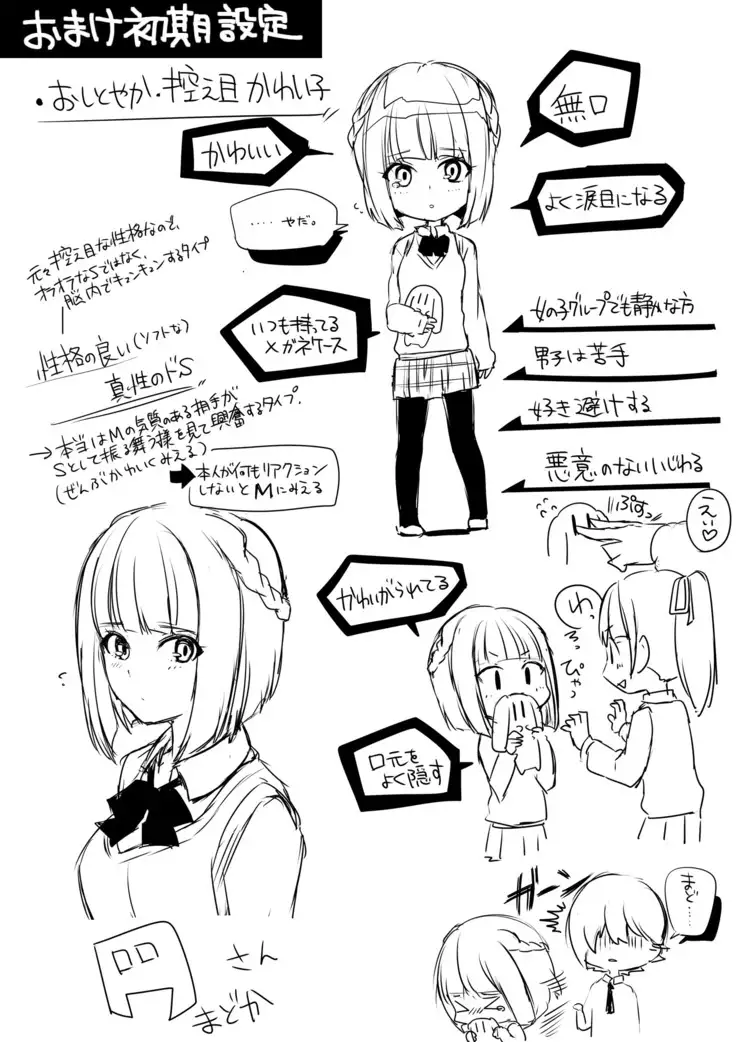 おまけ初期設定
・おしとやか・控え目 かわい子
無口
かわいい
よく涙目になる
‥‥やだ。
元々控え目な性格なので、
オラオラなSではなく、
脳内でキュンキュンするタイプ
いつも持ってる
メガネケース
女の子グループでも静かな方
男子は苦手
好き避けする
悪意のないいじわる
性格の良い(ソフトな)
真性のドS
→本当はMの気質のある相手が
Sとして振る舞う様を見て興奮するタイプ.
(ぜんぶかわいくみえる)
本人が何もリアクション
しないとMにみえる
ぷすっ
えい♡
かわいがられてる
わっ
ろっぴゃっ
口元を
よく隠す
ガーン
まど‥‥
さん
まどか